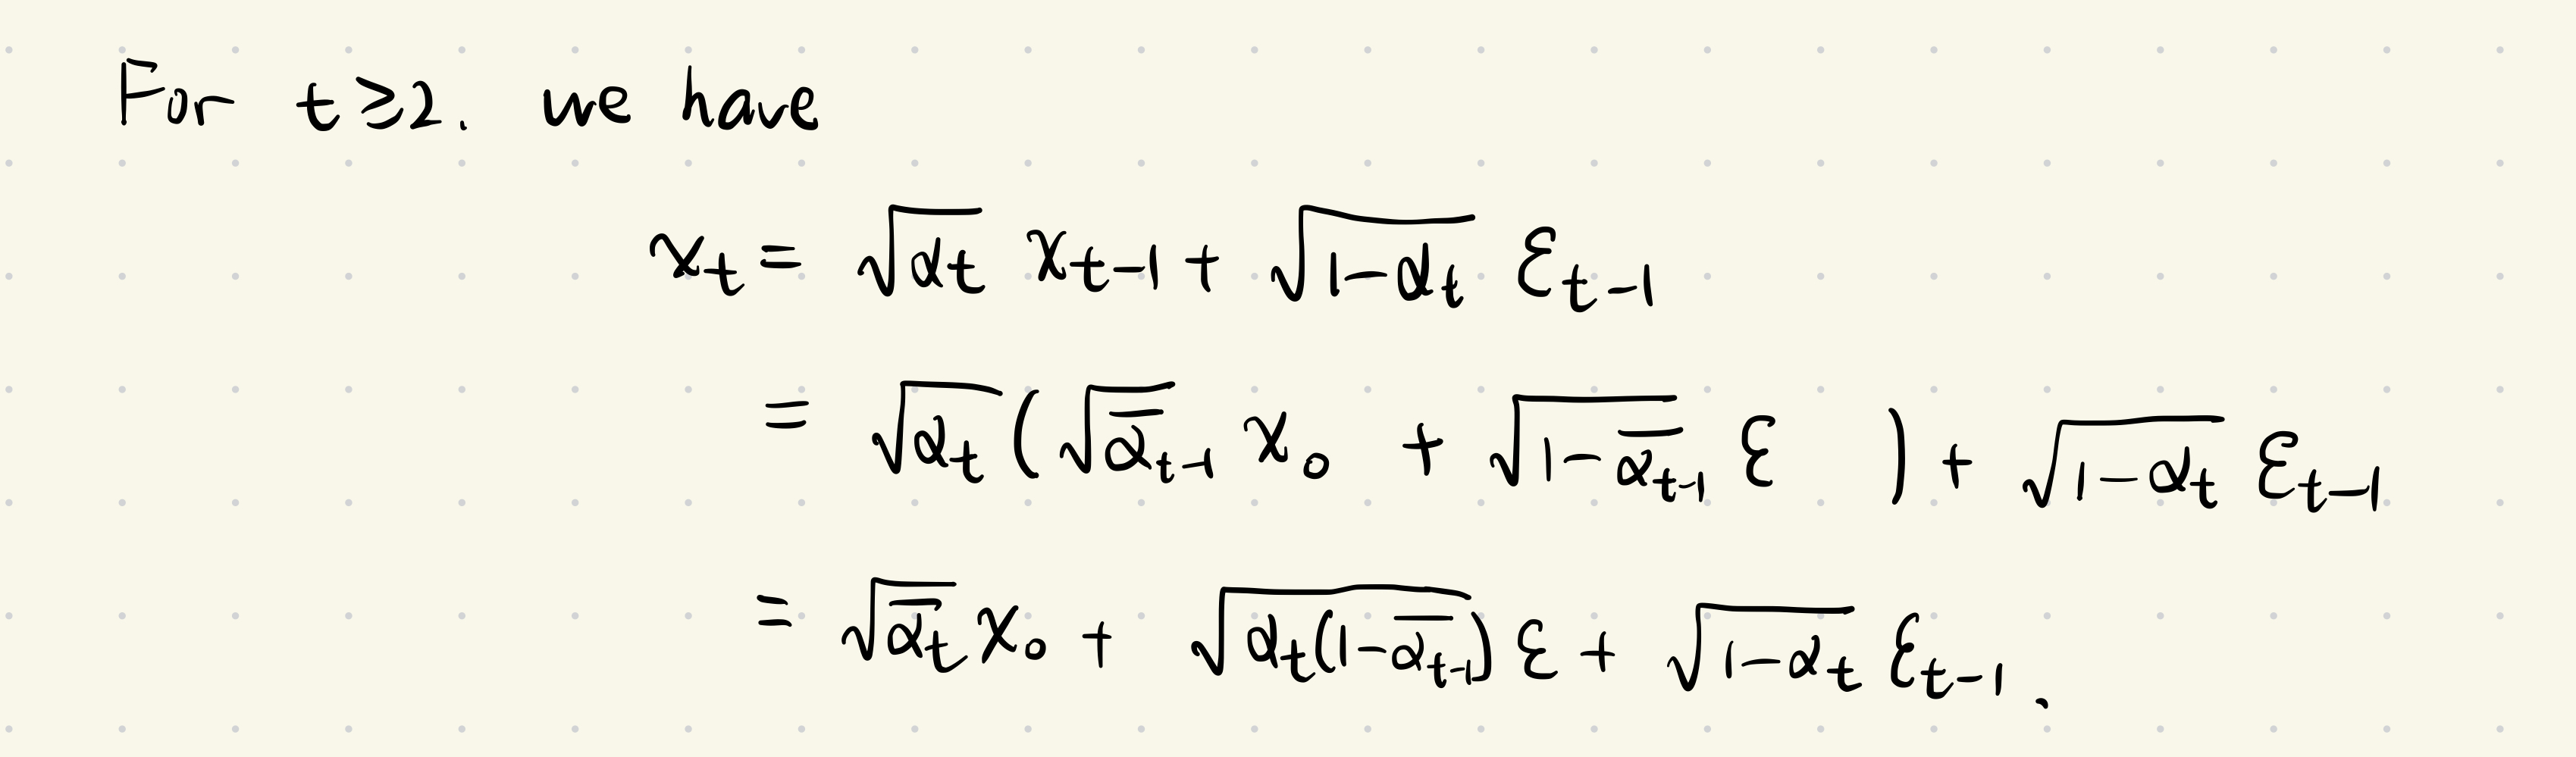 For t ≥ 2. we have
x_t = √(α_t) x_{t-1} + √(1-α_t) ε_{t-1}
= √(α_t) ( √(ᾱ_{t-1}) x_0 + √(1-ᾱ_{t-1}) ε ) + √(1-α_t) ε_{t-1}
= √(ᾱ_t) x_0 + √(α_t(1-ᾱ_{t-1})) ε + √(1-α_t) ε_{t-1}.